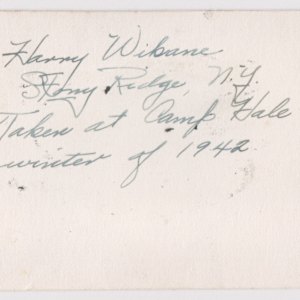 Harry Wikane
Stony Ridge, N.Y.
Taken at Camp Hale
winter of 1942